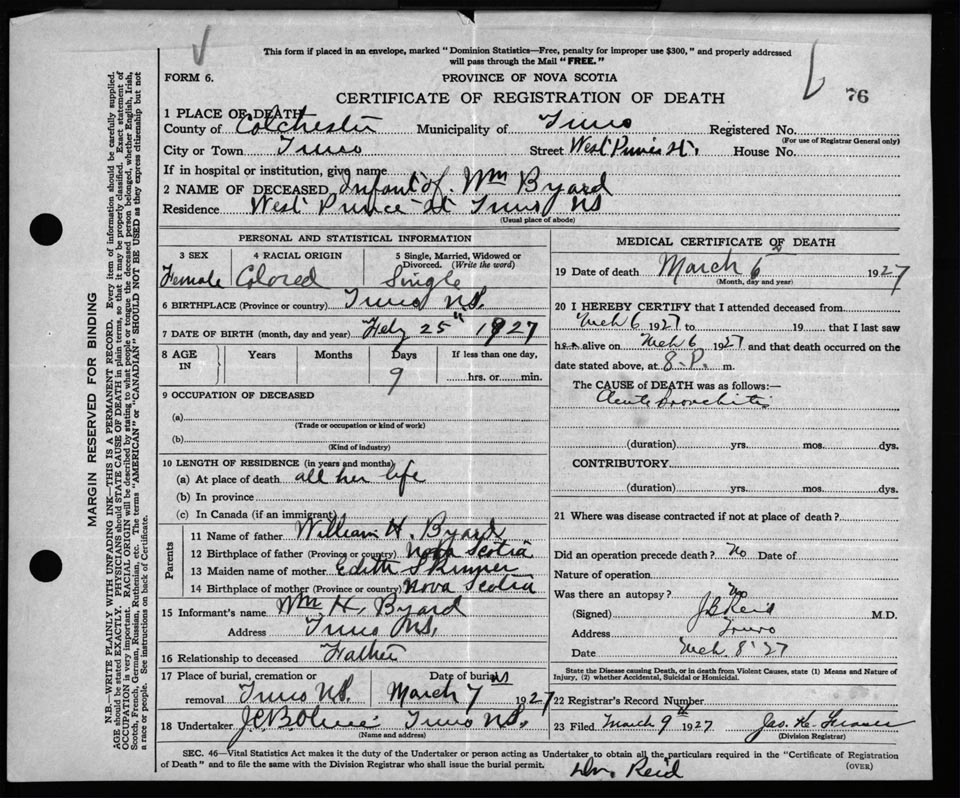 This form if placed in an envelope, marked "Dominion Statistics—Free, penalty for improper use $300," and properly addressed
will pass through the Mail "FREE."
FORM 6.
PROVINCE OF NOVA SCOTIA
76
CERTIFICATE OF REGISTRATION OF DEATH
1 PLACE OF DEATH
County of Colchester Municipality of Truro Registered No.
(For use of Registrar General only)
City or Town Truro Street West Prince St. House No.
If in hospital or institution, give name
2 NAME OF DECEASED Infant of Wm Byard
Residence West Prince St Truro NS
(Usual place of abode)
PERSONAL AND STATISTICAL INFORMATION
3 SEX 4 RACIAL ORIGIN 5 Single, Married, Widowed or Divorced. (Write the word)
Female Colored Single
6 BIRTHPLACE (Province or country) Truro NS.
7 DATE OF BIRTH (month, day and year) Feby 25th 1927
8 AGE IN Years Months Days If less than one day,
9 hrs. or min.
9 OCCUPATION OF DECEASED
(a)
(Trade or occupation or kind of work)
(b)
(Kind of industry)
10 LENGTH OF RESIDENCE (in years and months)
(a) At place of death all her life
(b) In province
(c) In Canada (if an immigrant)
Parents
11 Name of father William H. Byard
12 Birthplace of father (Province or country) Nova Scotia
13 Maiden name of mother Edith Skinner
14 Birthplace of mother (Province or country) Nova Scotia
15 Informant's name Wm H. Byard
Address Truro NS.
16 Relationship to deceased Father
17 Place of burial, cremation or removal Truro NS. Date of burial March 7 1927
18 Undertaker Truro NS.
(Name and address)
MEDICAL CERTIFICATE OF DEATH
19 Date of death March 6 1927
(Month, day and year)
20 I HEREBY CERTIFY that I attended deceased from
Mch 6 1927 to 19 that I last saw
h alive on Mch 6 1927 and that death occurred on the
date stated above, at 8 P. m.
The CAUSE of DEATH was as follows:—
Acute Bronchitis
(duration) yrs. mos. dys.
CONTRIBUTORY
(duration) yrs. mos. dys.
21 Where was disease contracted if not at place of death?
Did an operation precede death? No Date of
Nature of operation
Was there an autopsy? No
(Signed) J B Reid M.D.
Address Truro
Date Mch 8 '27
State the Disease causing Death, or in death from Violent Causes, state (1) Means and Nature of
Injury, (2) whether Accidental, Suicidal or Homicidal.
22 Registrar's Record Number
23 Filed March 9th 1927
(Division Registrar)
SEC. 46—Vital Statistics Act makes it the duty of the Undertaker or person acting as Undertaker to obtain all the particulars required in the "Certificate of Registration
of Death" and to file the same with the Division Registrar who shall issue the burial permit.
(OVER)
Dr. Reid
MARGIN RESERVED FOR BINDING
N.B.—WRITE PLAINLY WITH UNFADING INK—THIS IS A PERMANENT RECORD. Every item of information should be carefully supplied.
AGE should be stated EXACTLY. PHYSICIANS should STATE CAUSE OF DEATH in plain terms, so that it may be properly classified. Exact statement of
OCCUPATION is very important. RACIAL ORIGIN will be described by stating to what people or tongue the deceased person belonged, whether English, Irish,
Scotch, French, German, Russian, Ruthenian, etc. The terms "AMERICAN" or "CANADIAN" SHOULD NOT BE USED as they express citizenship but not
a race or people. See instructions on back of Certificate.